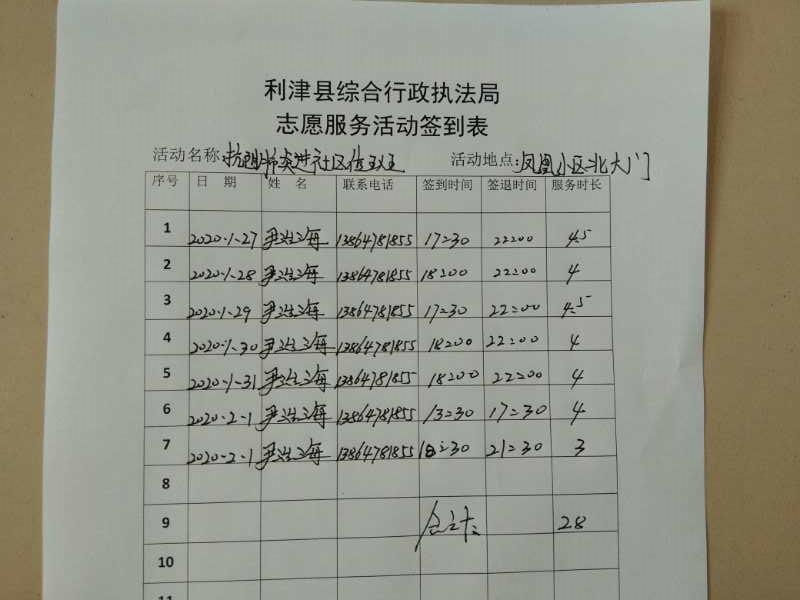 利津县综合行政执法局
志愿服务活动签到表
活动名称:抗击肺炎进社区值班 活动地点:凤凰小区北大门
序号 日 期 姓 名 联系电话 签到时间 签退时间 服务时长
1 2020.1.27 尹 海 13864781855 17:30 22:00 4.5
2 2020.1.28 尹 海 13864781855 18:00 22:00 4
3 2020.1.29 尹 海 13864781855 17:30 22:00 4.5
4 2020.1.30 尹 海 13864781855 18:00 22:00 4
5 2020.1.31 尹 海 13864781855 18:00 22:00 4
6 2020.2.1 尹 海 13864781855 13:30 17:30 4
7 2020.2.1 尹 海 13864781855 18:30 21:30 3
8
9 合计: 28
10
11